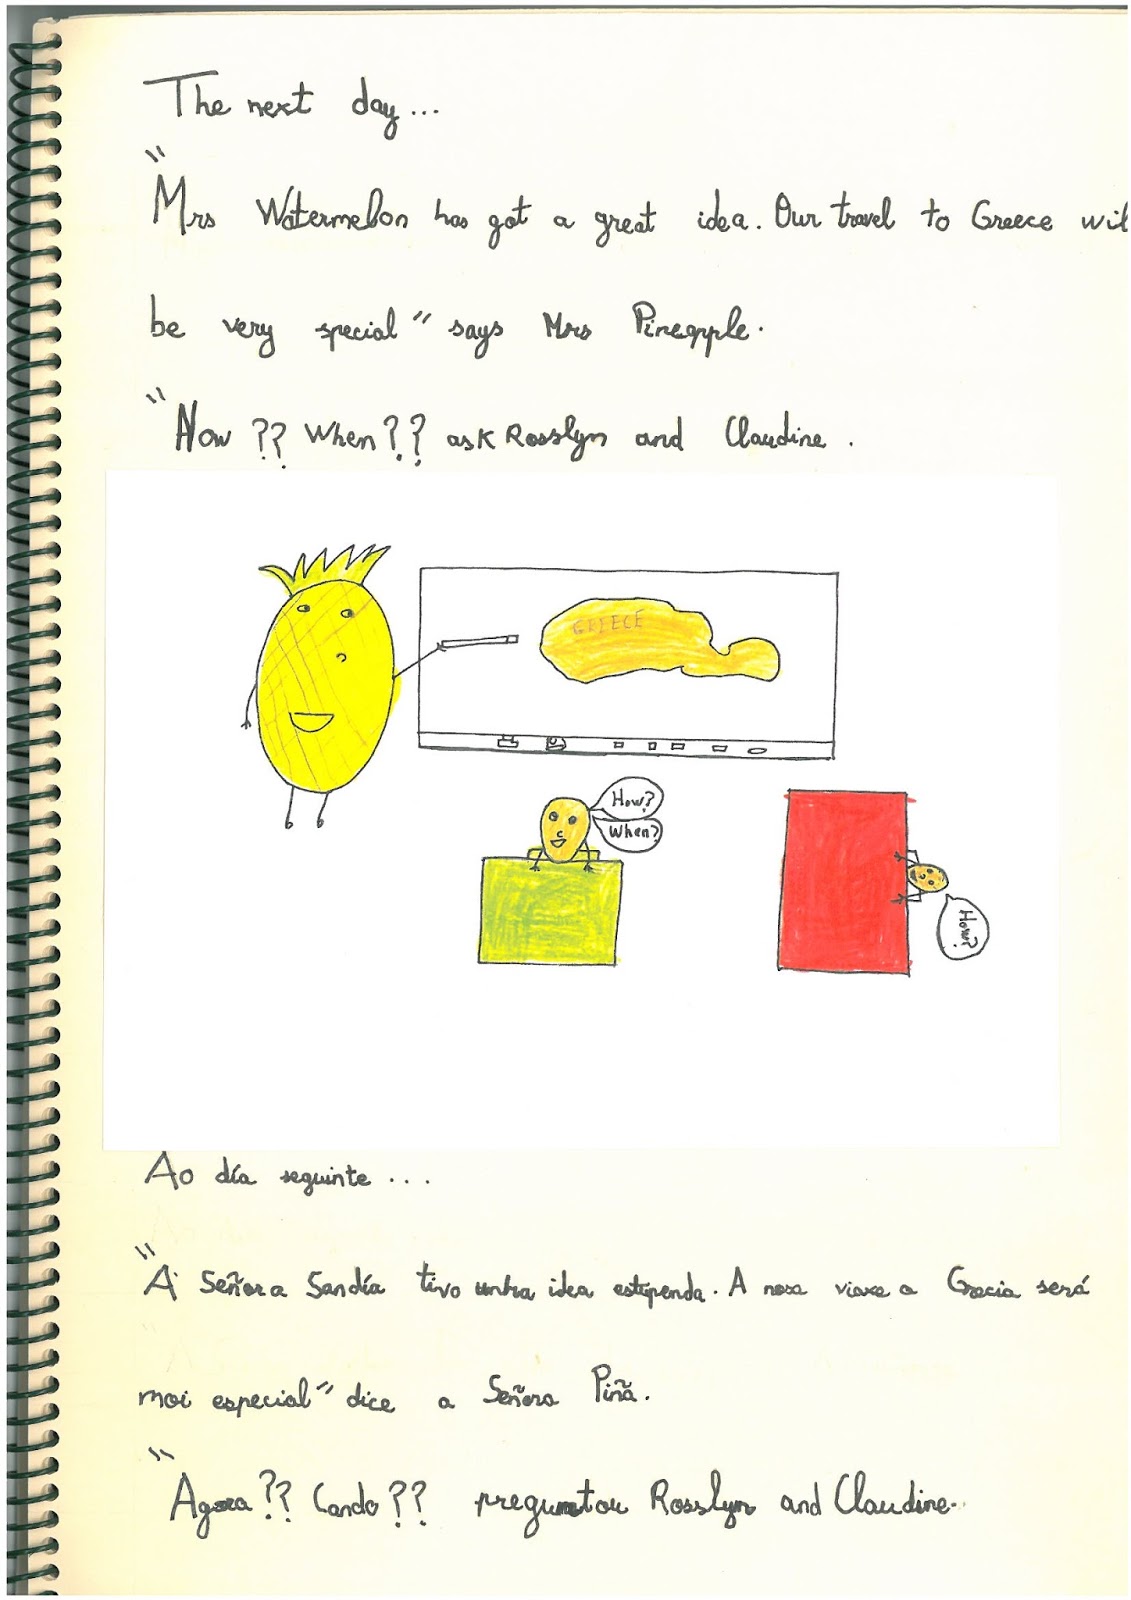 The next day...
"Mrs Watermelon has got a great idea. Our travel to Greece wil
be very special" says Mrs Pineapple.
"Now ?? When?? ask Rosslyn and Claudine.
GREECE
How?
When?
How?
Ao día seguinte...
"A Señora Sandía tivo unha idea estupenda. A nosa viaxe a Grecia será
moi especial" dice a Señora Piña.
"Agora?? Cando?? preguntou Rosslyn and Claudine.